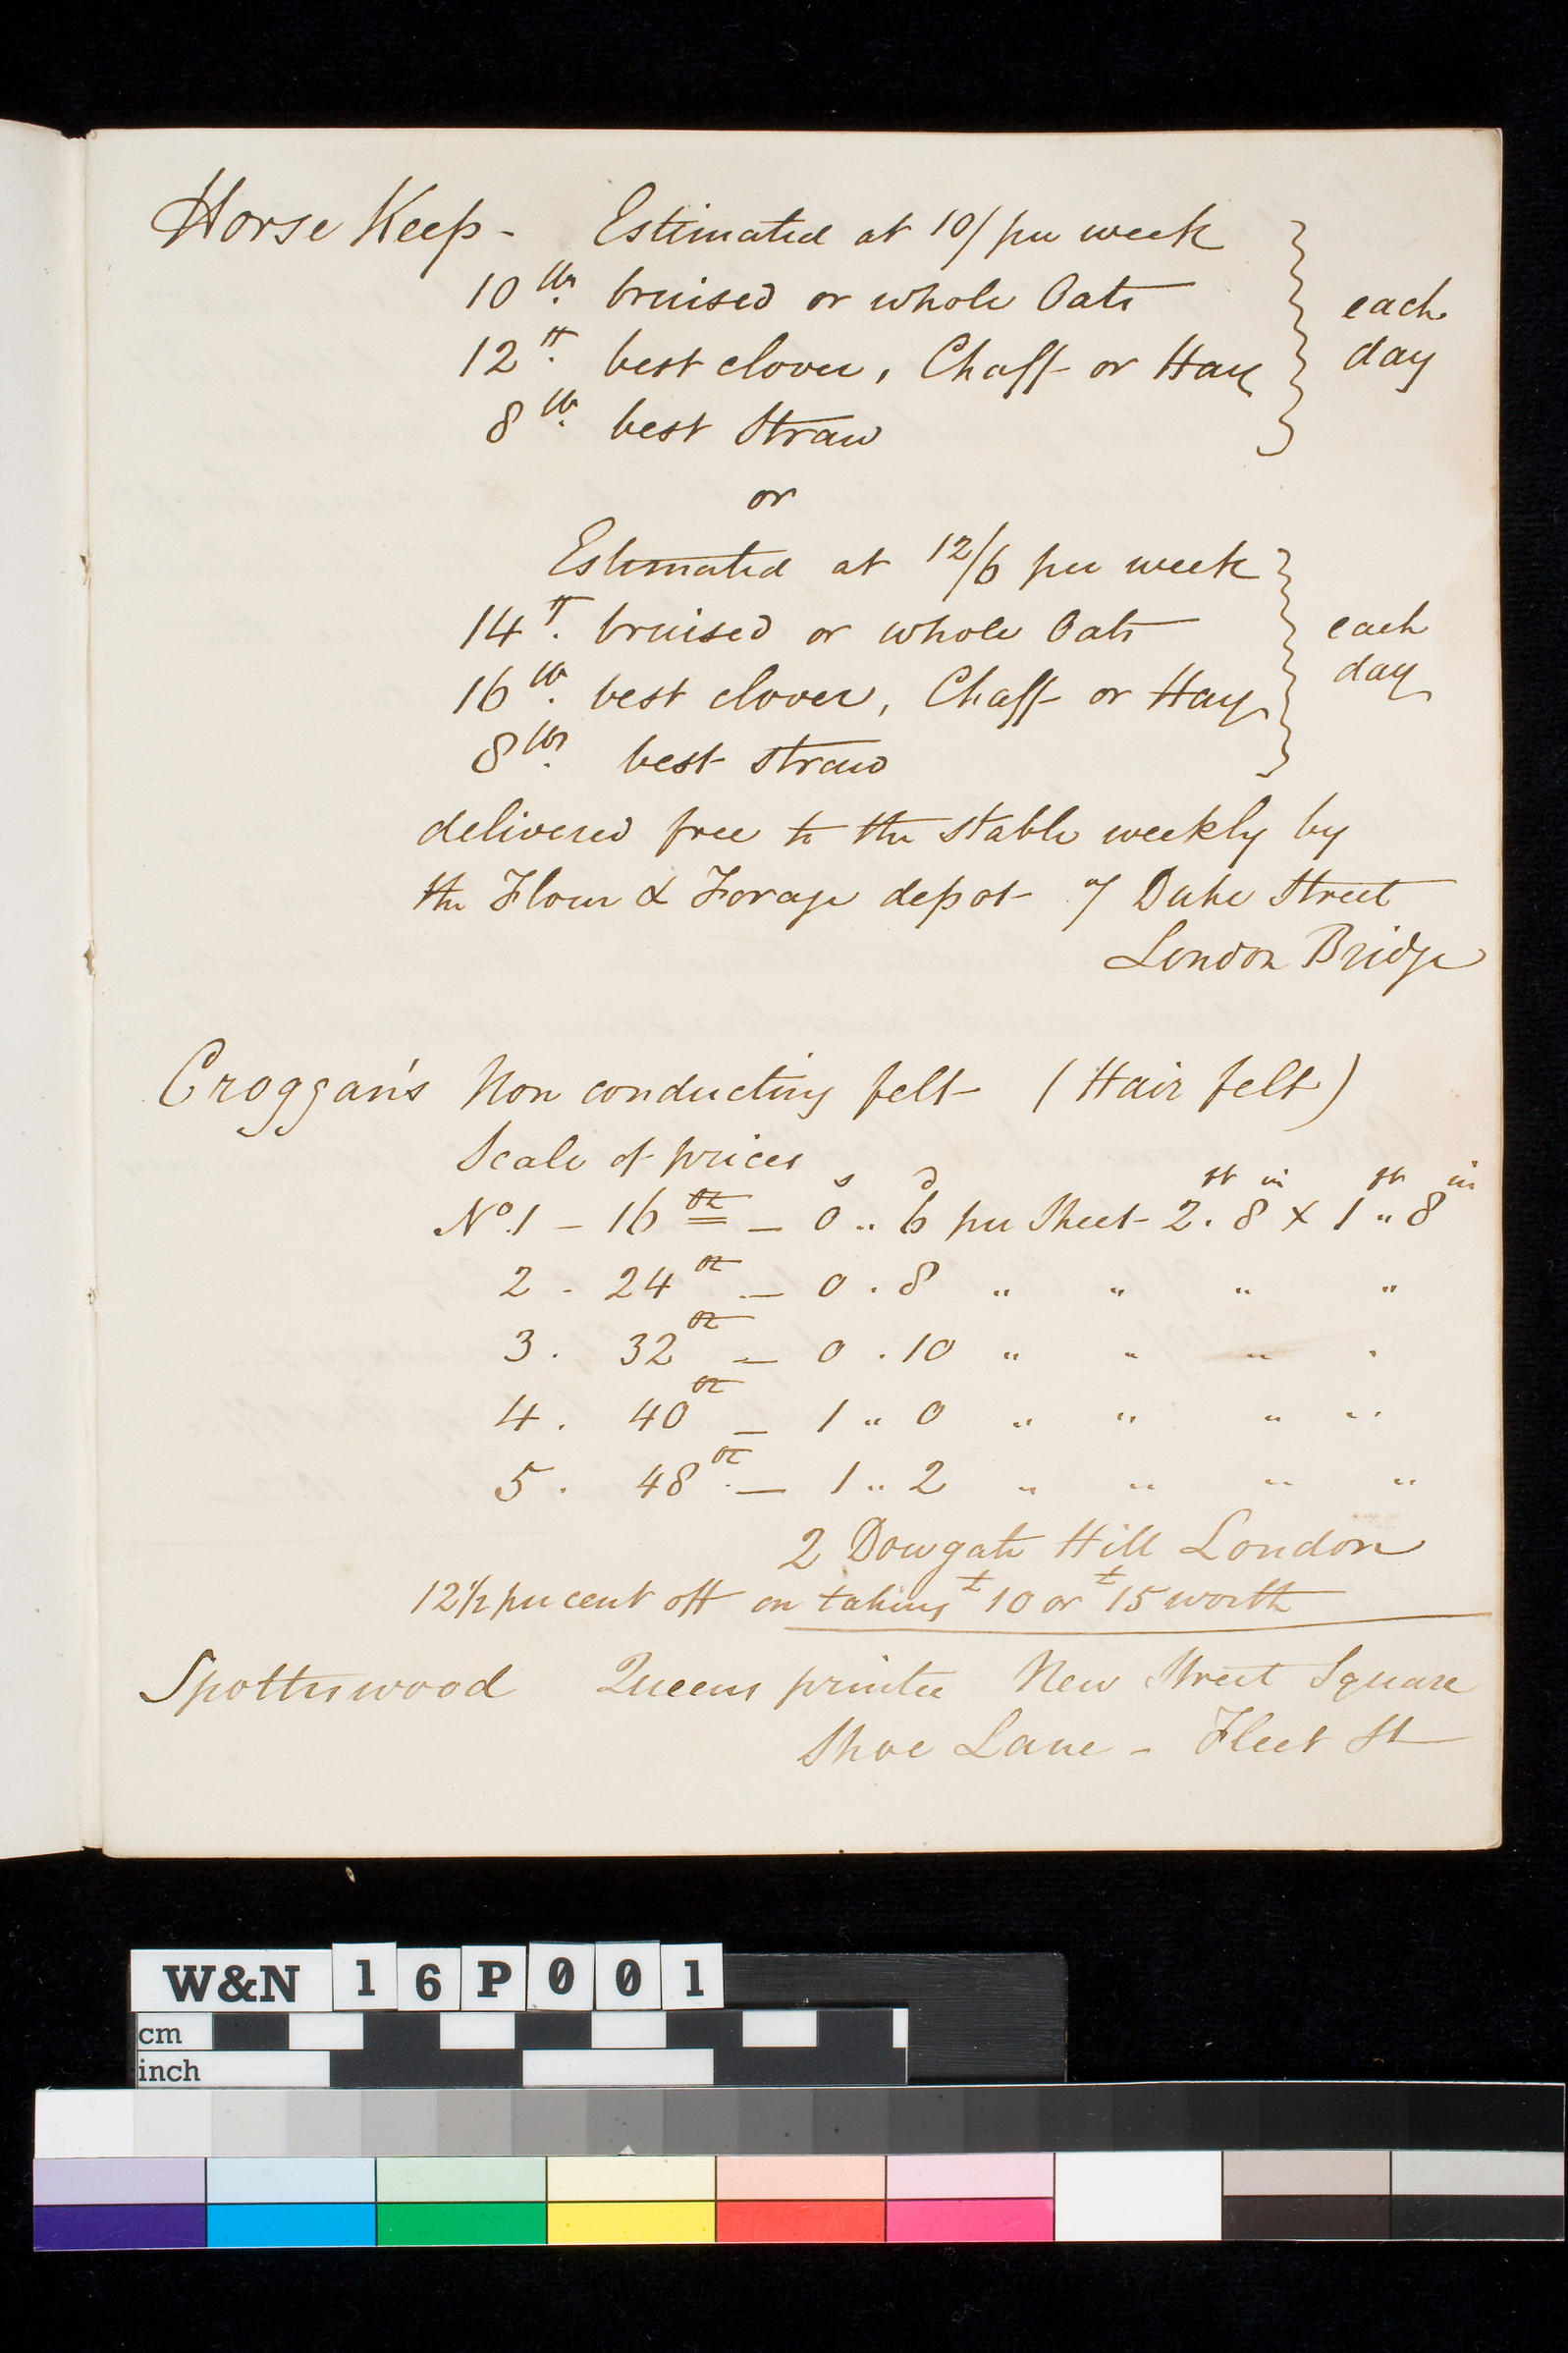 Horse Keep - Estimated at 10/ per week
10 lbs. bruised or whole Oats
12 lb. best clover, Chaff or Hay
8 lb. best Straw
each
day
or
Estimated at 12/6 per week
14 lb. bruised or whole Oats
16 lb. best clover, Chaff or Hay
8 lbs. best straw
each
day
delivered free to the stable weekly by
the Flour & Forage depot of Duke Street
London Bridge
Croggan's Non conducting felt (Hair felt)
Scale of prices
s d ft in ft in
No. 1 - 16 oz - 0 .. 6 per Sheet - 2 . 8 x 1 .. 8
2 - 24 oz - 0 . 8 " " " "
3 . 32 oz - 0 . 10 " " " "
4 . 40 oz - 1 .. 0 " " " "
5 . 48 oz - 1 .. 2 " " " "
2 Dowgate Hill London
12 1/2 per cent off on taking £10 or £15 worth
Spottiswood Queens printer New Street Square
Shoe Lane - Fleet St
W&N 16P001
cm
inch